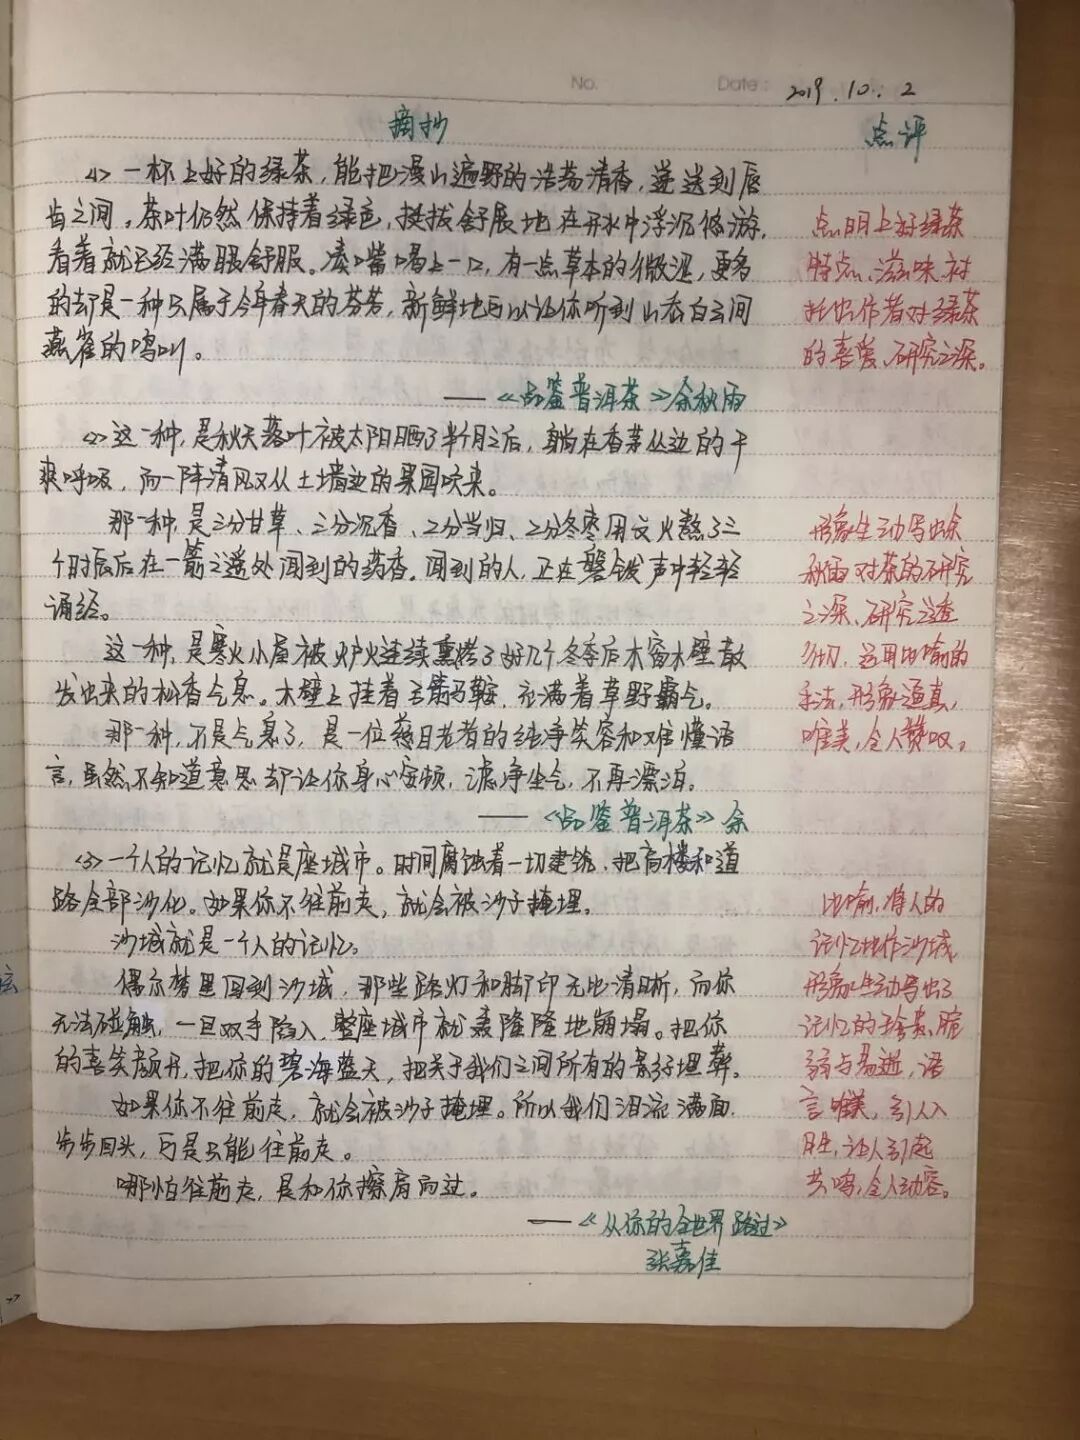 No.
Date: 2019.10.2
摘抄
点评
<1> 一杯上好的绿茶,能把漫山遍野的浩荡清香,递送到唇
齿之间。茶叶仍然保持着绿色,挺拔舒展地在开水中浮沉悠游,
看着就已经满眼舒服。凑嘴喝上一口,有一点草本的微涩,更多
的却是一种只属于今年春天的芬芳,新鲜地可以让你听到山峦白云间
燕雀的鸣叫。
点明上好绿茶
特点、滋味,衬
托出作者对绿茶
的喜爱、研究之深。
——《品鉴普洱茶》余秋雨
<2> 这一种,是秋天落叶被太阳晒了半个月之后,躺在香茅丛边的干
爽呼吸,而一阵清风又从土墙边的果园吹来。
那一种,是三分甘草、三分沉香、二分当归、二分冬枣用文火熬了三
个时辰后在一箭之遥处闻到的药香。闻到的人,正在磬钹声中轻轻
诵经。
这一种,是寒火小屋被炉火连续熏烤了好几个冬季后木窗木壁散
发出来的松香气息。木壁上挂着弓箭马鞍,充满着草野霸气。
那一种,不是气息了,是一位慈目老者的纯净笑容和难懂语
言,虽然不知道意思却让你身心安顿,滤净尘气,不再漂泊。
形象生动写出余
秋雨对茶的研究
之深、研究之透
彻,运用比喻的
手法,形象逼真,
唯美,令人赞叹。
——《品鉴普洱茶》余
<3> 一个人的记忆就是座城市。时间腐蚀着一切建筑,把高楼和道
路全部沙化。如果你不往前走,就会被沙子掩埋。
沙城就是一个人的记忆。
偶尔梦里回到沙城,那些路灯和脚印无比清晰,而你
无法碰触,一旦双手陷入,整座城市就轰隆隆地崩塌。把你
的喜笑颜开,把你的碧海蓝天,把关于我们之间所有的影子埋葬。
如果你不往前走,就会被沙子掩埋。所以我们泪流满面,
步步回头,可是只能往前走。
哪怕往前走,是和你擦肩而过。
比喻,将人的
记忆比作沙城
形象生动写出了
记忆的珍贵、脆
弱与易逝,语
言唯美,引人入
胜,让人引起
共鸣,令人动容。
——《从你的全世界路过》
张嘉佳